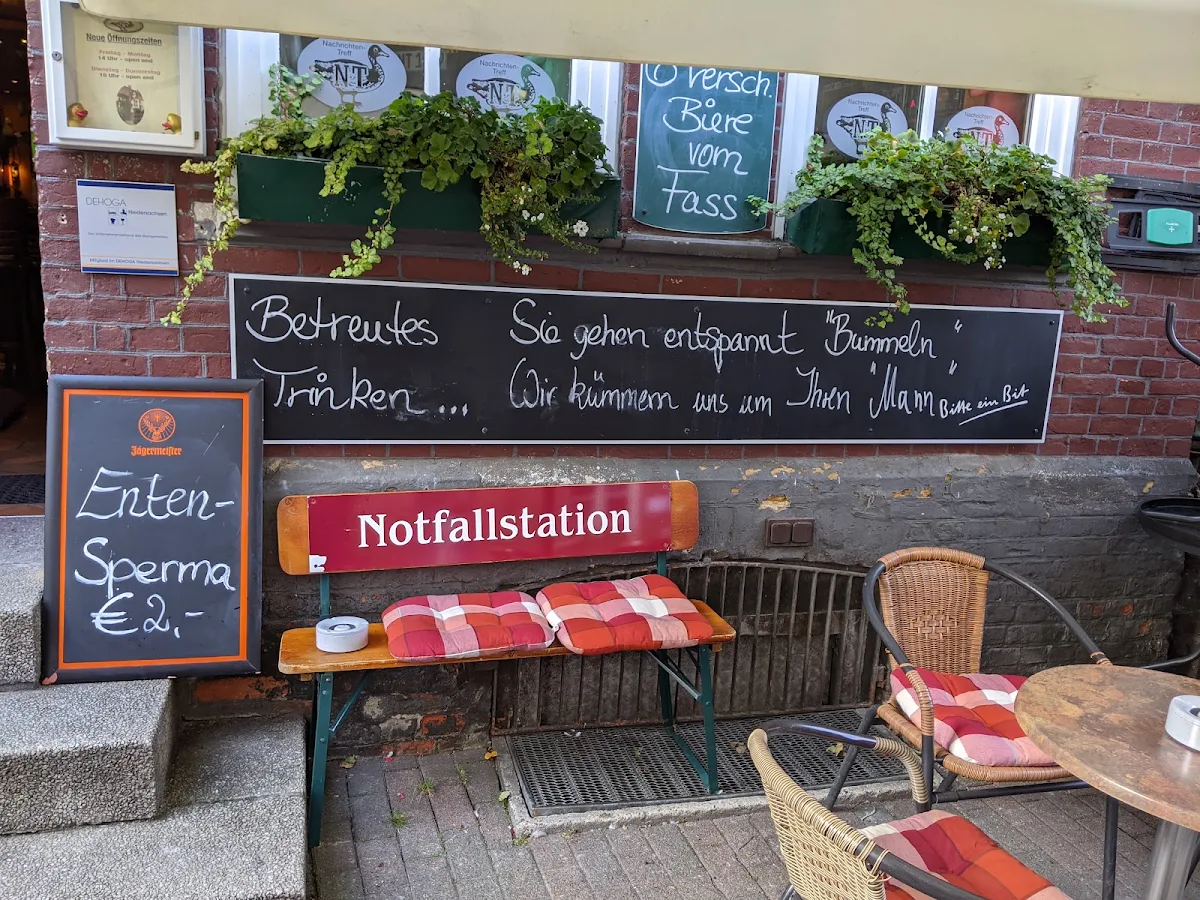 Neue Öffnungszeiten
Freitag - Montag
14 Uhr - open end
Dienstag - Donnerstag
16 Uhr - open end
DEHOGA
Niedersachsen
Mitglied im DEHOGA Niedersachsen
Nachrichten-
Treff
NT
Nachrichten-
Treff
NT
6 versch.
Biere
vom
Fass
Nachrichten-
Treff
NT
Nachrichten-
Treff
NT
Betreutes
Trinken ...
Sie gehen entspannt "Bummeln"
Wir kümmern uns um Ihren "Mann"
Bitte ein Bit
Jägermeister
Enten-
Sperma
€ 2,-
Notfallstation